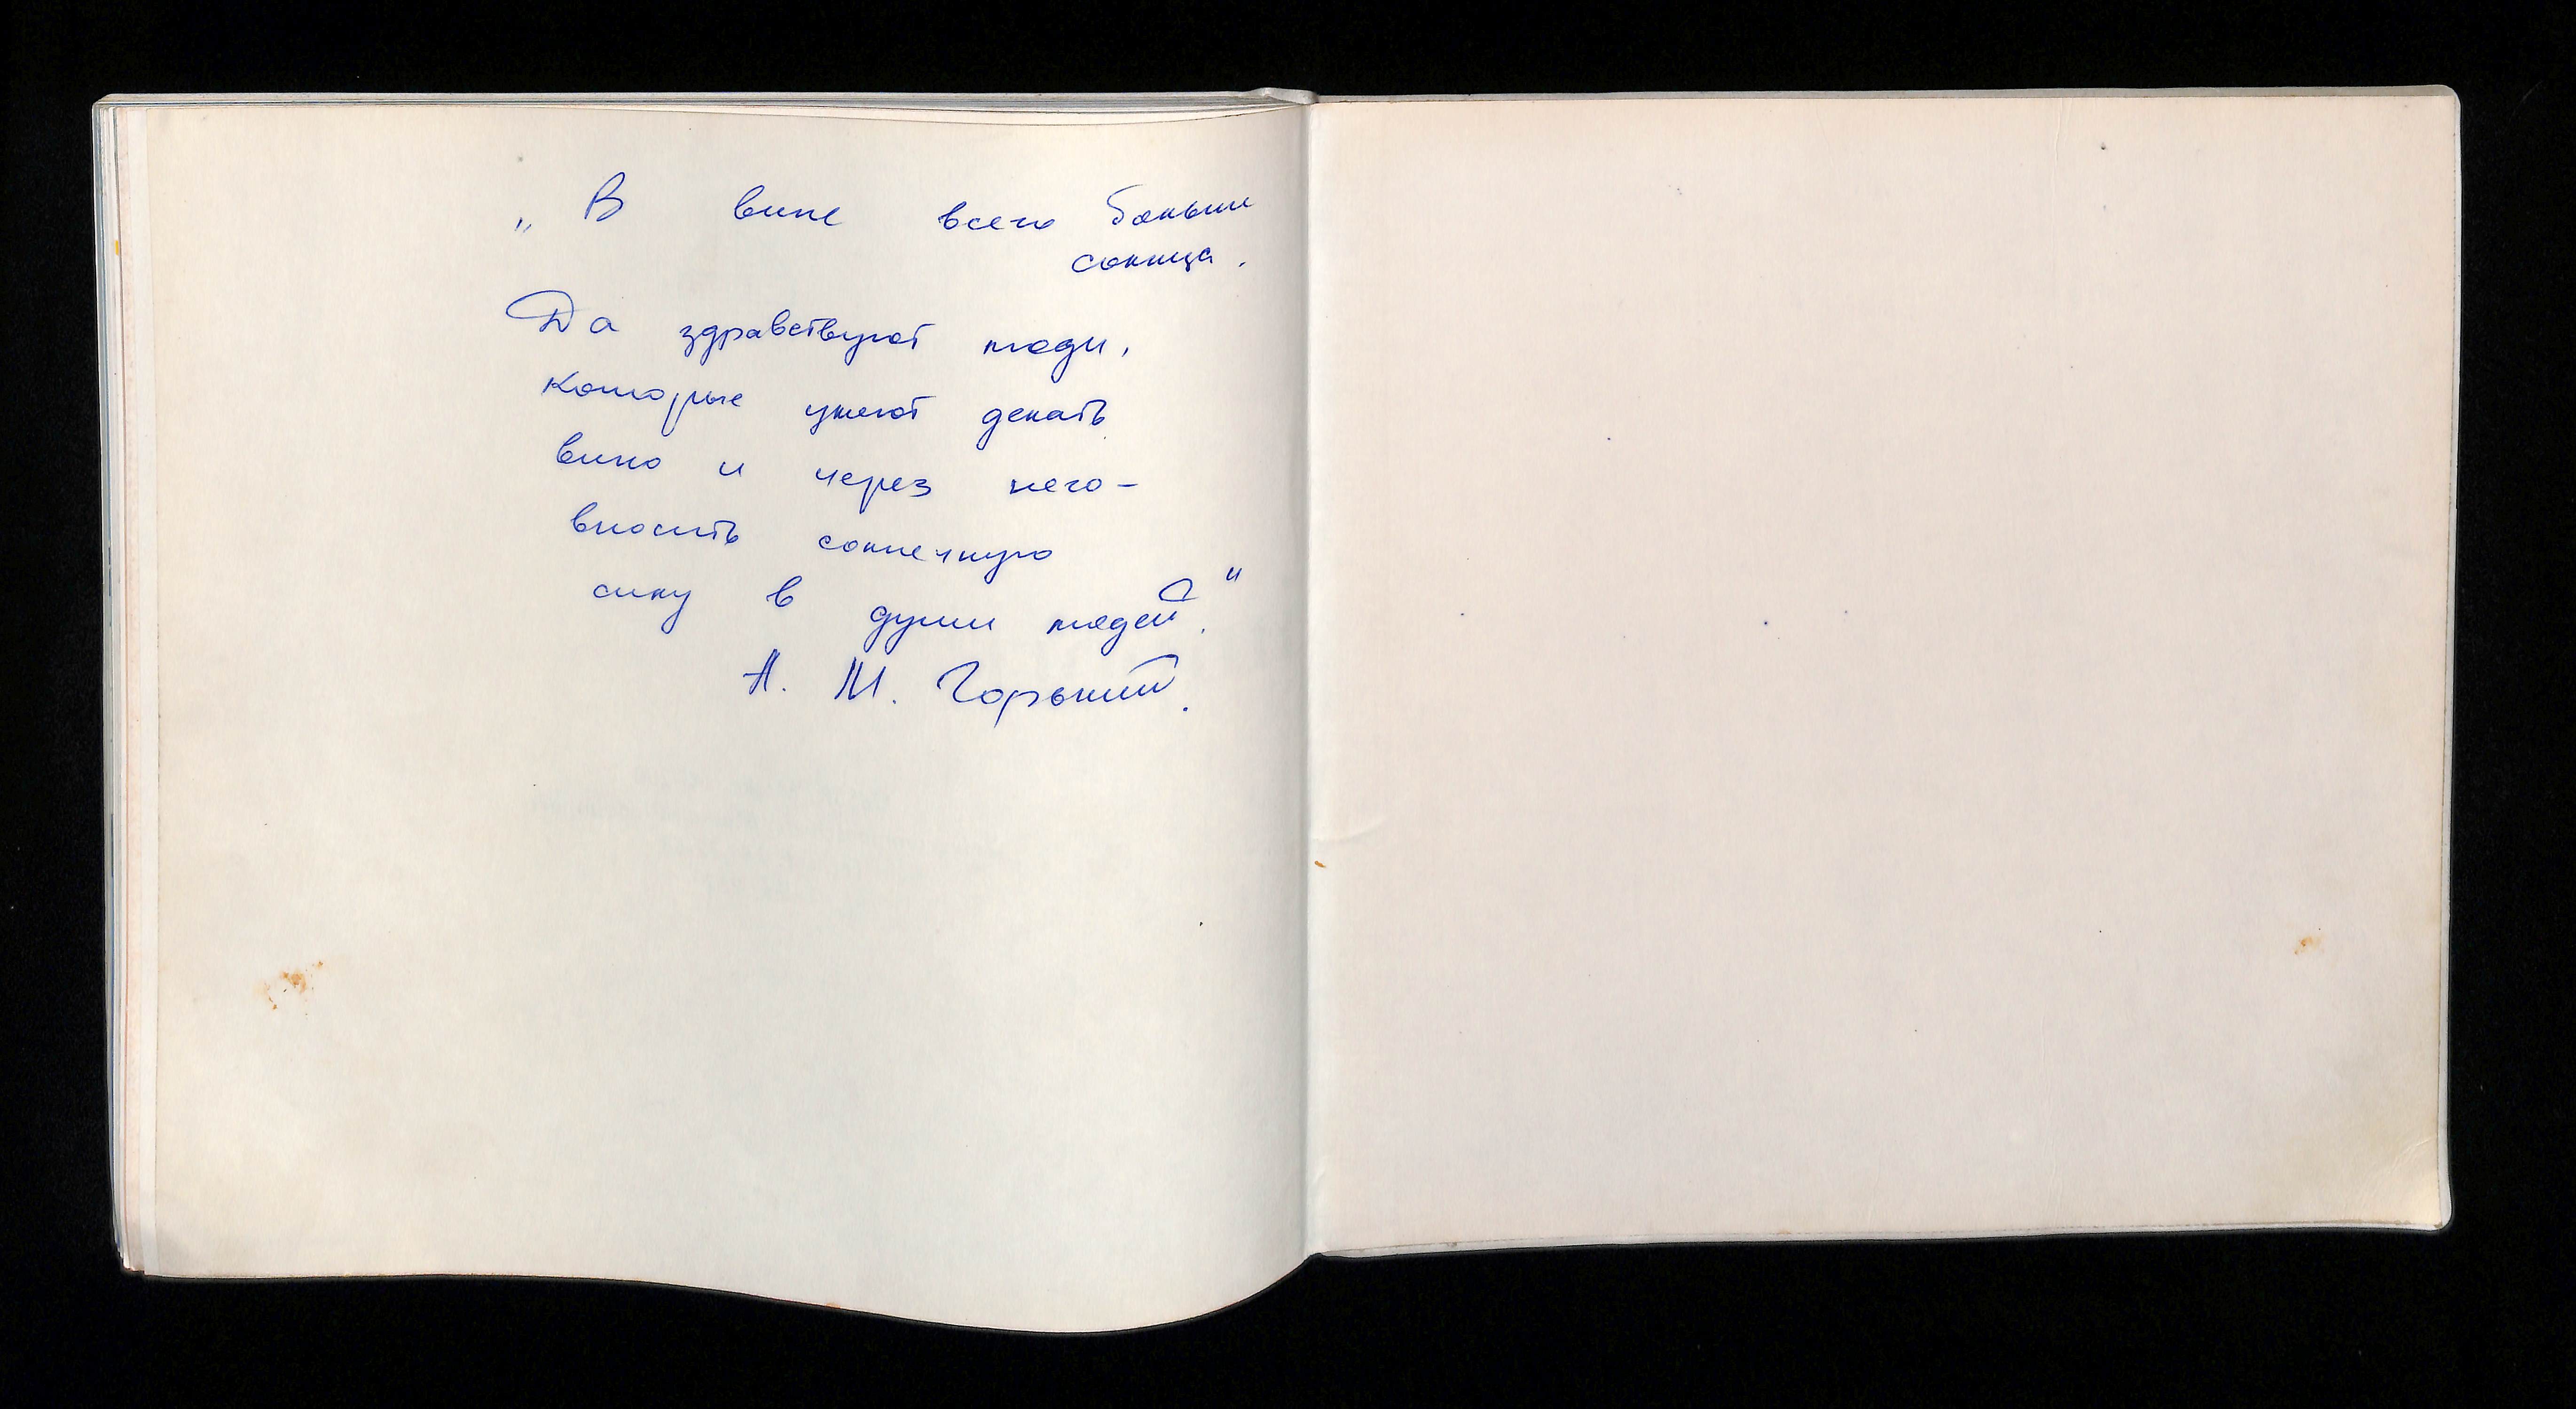 „В вине всего больше
солнца.
Да здравствуют люди,
которые умеют делать
вино и через него –
вносить солнечную
силу в души людей."
А. М. Горький.